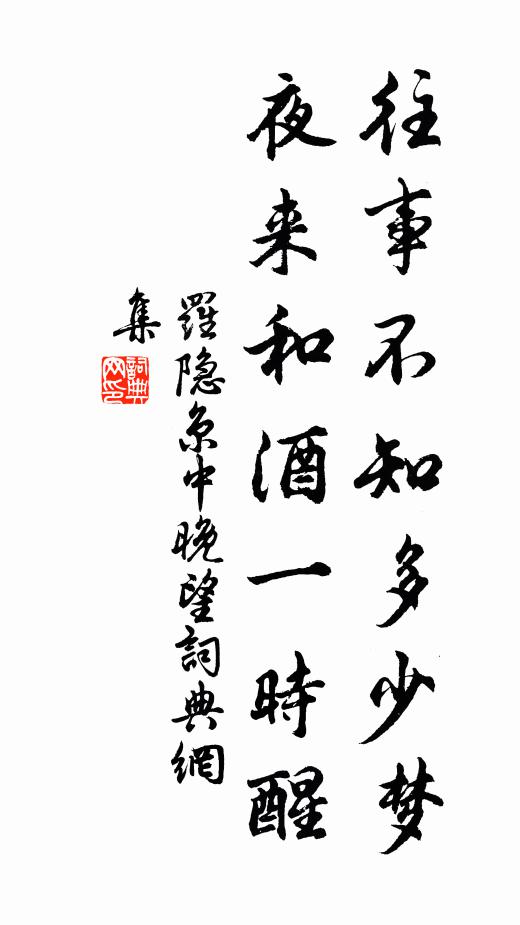 往事不知多少梦
夜来和酒一時醒
羅隐京中晚望詞典網
集
詞典網印